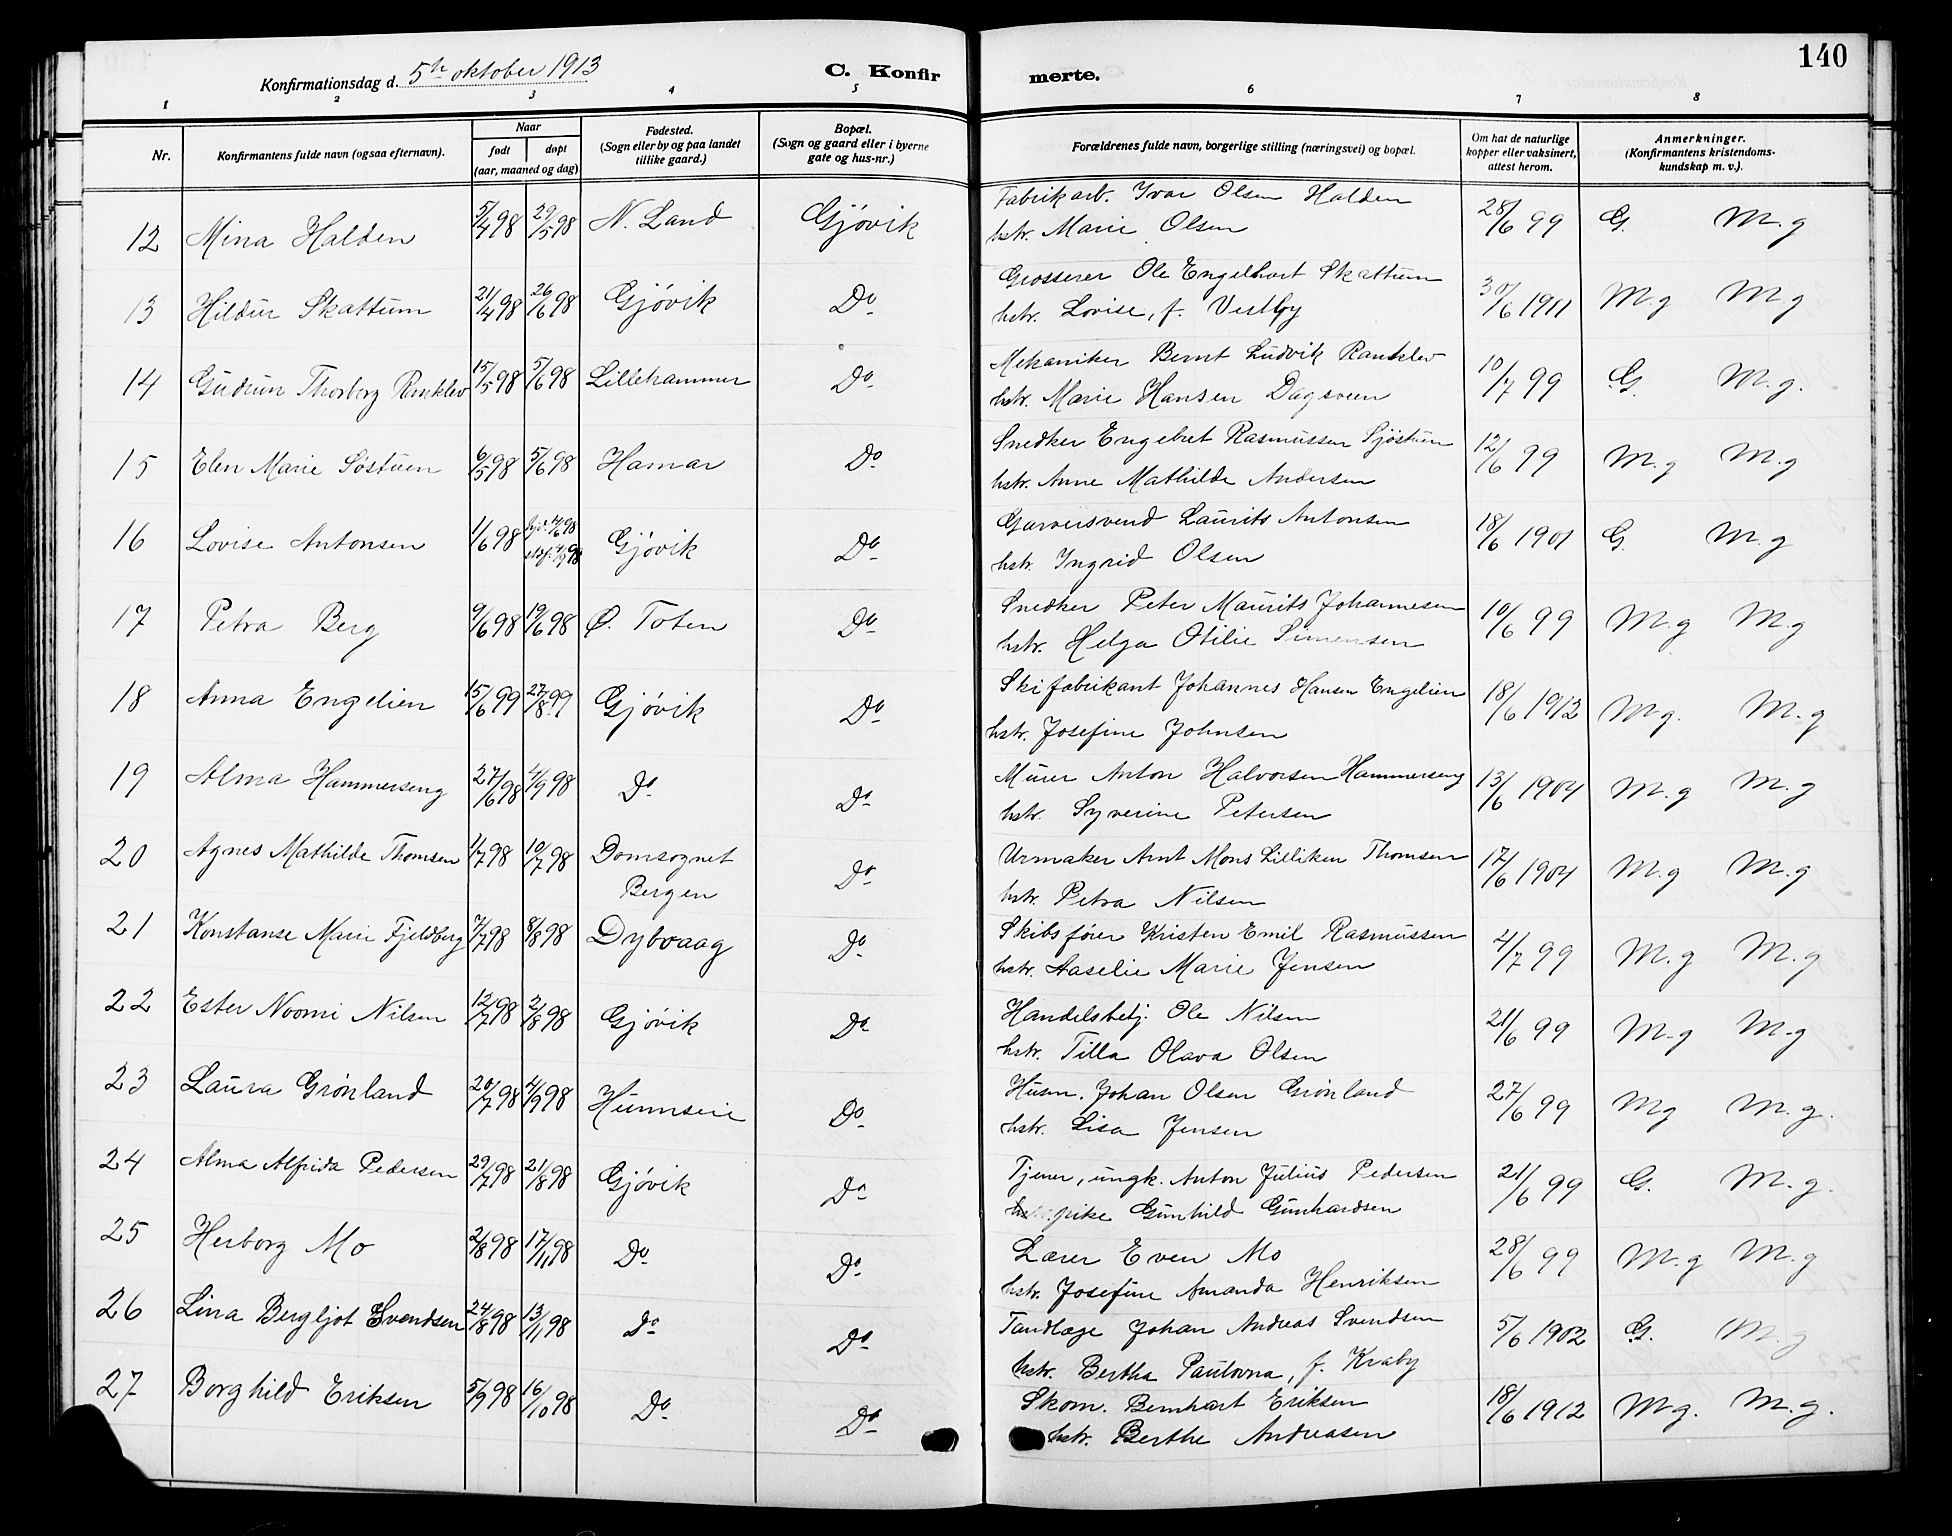 140
Konfirmationsdag d. 5te oktober 1913
C. Konfirmerte.
1 2 3 4 5 6 7 8
Nr.
Konfirmantens fulde navn (ogsaa efternavn).
Naar
født døpt
(aar, maaned og dag)
Fødested.
(Sogn eller by og paa landet
tillike gaard.)
Bopæl.
(Sogn og gaard eller i byerne
gate og hus-nr.)
Forældrenes fulde navn, borgerlige stilling (næringsvei) og bopæl.
Om hat de naturlige
kopper eller vaksinert,
attest herom.
Anmerkninger.
(Konfirmantens kristendoms-
kundskap m. v.).
12 Mina Halden 5/4 98 29/5 98 N. Land Gjøvik Fabrikarb. Ivar Olsen Halden 28/6 99 G. M.g
hstr. Marie Olsen
13 Hildur Skattum 21/4 98 26/6 98 Gjøvik Do Grosserer Ole Engelhart Skattum 30/6 1911 M.g M.g
hstr. Lovise, f. Vestby
14 Gudrun Thorberg Ranklev 15/5 98 5/6 98 Lillehammer Do Mekaniker Bernt Ludvik Ranklev 10/7 99 G. M.g.
hstr. Marie Hansen Dagsveen
15 Elen Marie Søstuen 6/5 98 5/6 98 Hamar Do Snedker Engebret Rasmussen Sjøstuen 12/6 99 M.g M.g
hstr. Anne Mathilde Andersen
16 Lovise Antonsen 1/6 98 Gjøvik Do Garversvend Laurits Antonsen 18/6 1901 G. M.g
hstr. Ingrid Olsen
17 Petra Berg 9/6 98 19/6 98 Ø. Toten Do Snedker Peter Maurits Johannesen 10/6 99 M.g M.g
hstr. Helga Otilie Simensen
18 Anna Engelien 15/6 99 27/8 99 Gjøvik Do Skifabrikant Johannes Hansen Engelien 18/6 1912 M.g. M.g
hstr. Josefine Johnsen
19 Alma Hammerseng 27/6 98 4/9 98 Do Do Murer Anton Halvorsen Hammerseng 13/6 1904 M.g M.g
hstr. Syverine Petersen
20 Agnes Mathilde Thomsen 1/7 98 10/7 98 Domsognet Do Urmaker Arnt Mons Lilliken Thomsen 17/6 1904 M.g M.g
Bergen hstr. Petra Nilsen
21 Konstanse Marie Fjeldberg 7/7 98 8/8 98 Dybvaag Do Skibsfører Kristen Emil Rasmussen 4/7 99 M.g M.g
hstr. Aaselie Marie Jensen
22 Ester Noomi Nilsen 12/7 98 2/8 98 Gjøvik Do Handelsbetj. Ole Nilsen 21/6 99 M.g M.g
hstr. Tilla Olava Olsen
23 Laura Grønland 20/7 98 4/9 98 Hunnseie Do Husm. Johan Olsen Grønland 27/6 99 Mg M.g.
hstr. Lisa Jensen
24 Alma Alfrida Pedersen 29/7 98 21/8 98 Gjøvik Do Tjener, ungk. Anton Julius Pedersen 21/6 99 G. M.g.
pike Gunhild Gunhardsen
25 Herborg Mo 2/8 98 17/11 98 Do Do Lærer Even Mo 28/6 99 M.g M.g
hstr. Josefine Amanda Henriksen
26 Lina Bergljot Svendsen 24/8 98 13/11 98 Do Do Tandlæge Johan Andreas Svendsen 5/6 1902 G. M.g
hstr. Bertha Paulovna, f. Kraby
27 Borghild Eriksen 5/9 98 16/10 98 Do Do Skom. Bernhart Eriksen 18/6 1912 M.g. M.g.
hstr. Berthe Andreasen